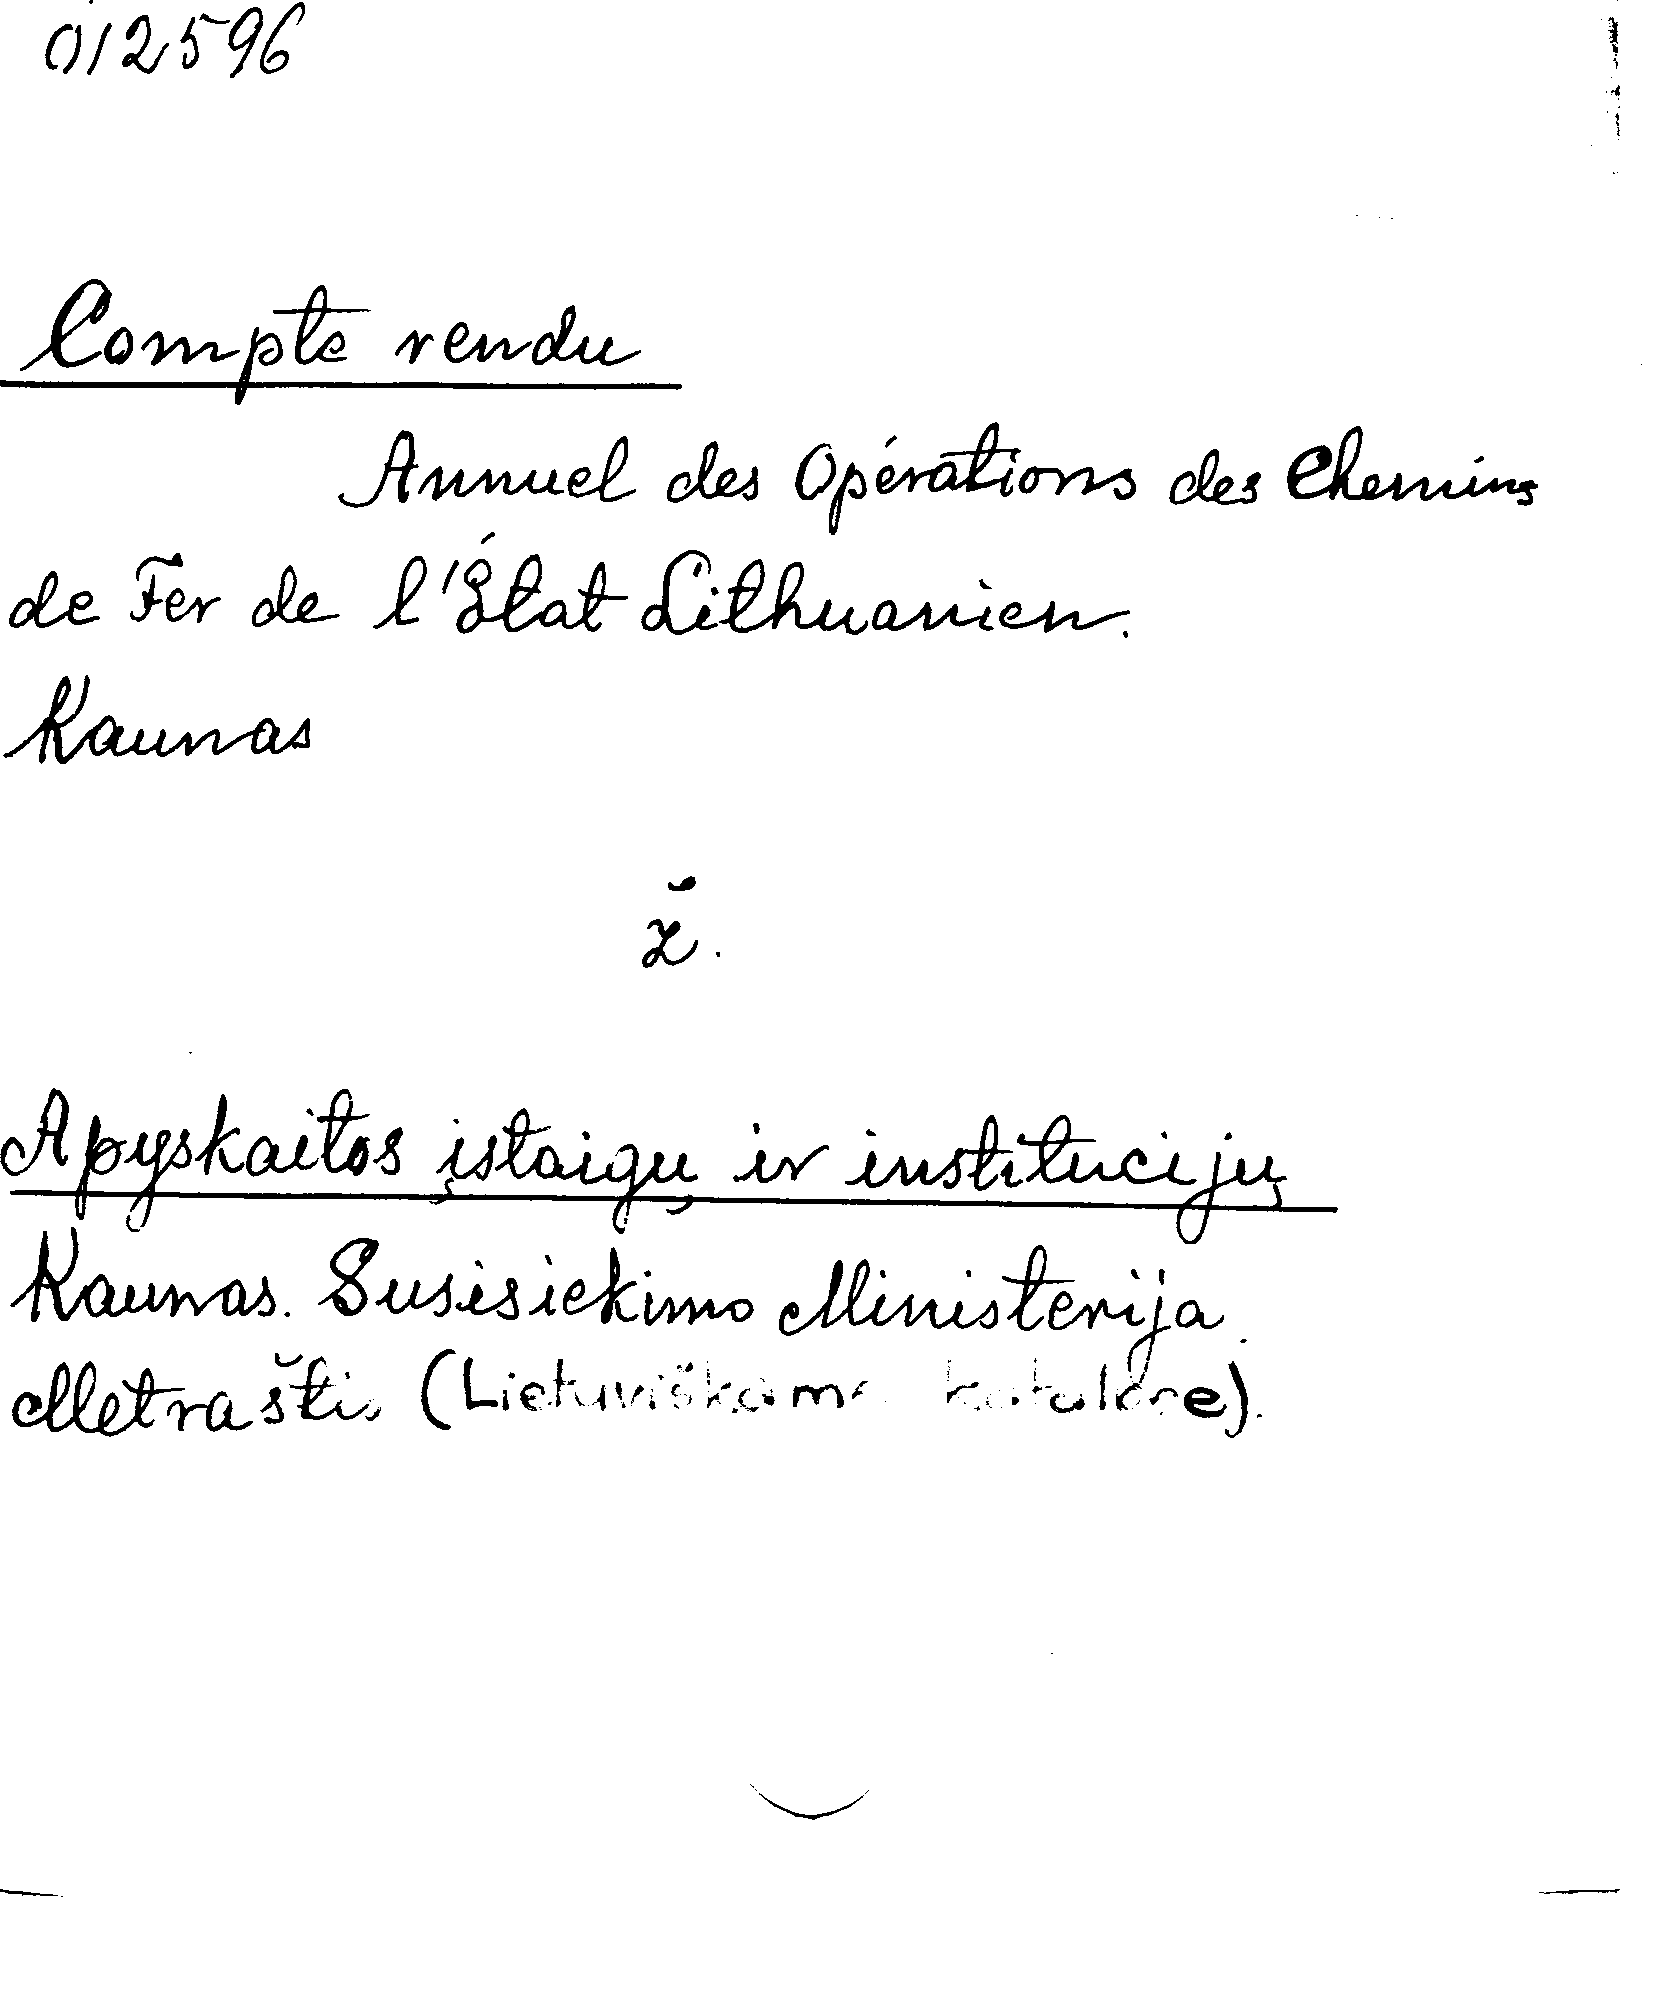 012596
Compte rendu
Annuel des Opérations des Chemins
de Fer de l'État Lithuanien.
Kaunas
ž.
Apyskaitos įstaigų ir institucijų
Kaunas. Susisiekimo Ministerija.
Metraštis (Lietuviškame kataloge).